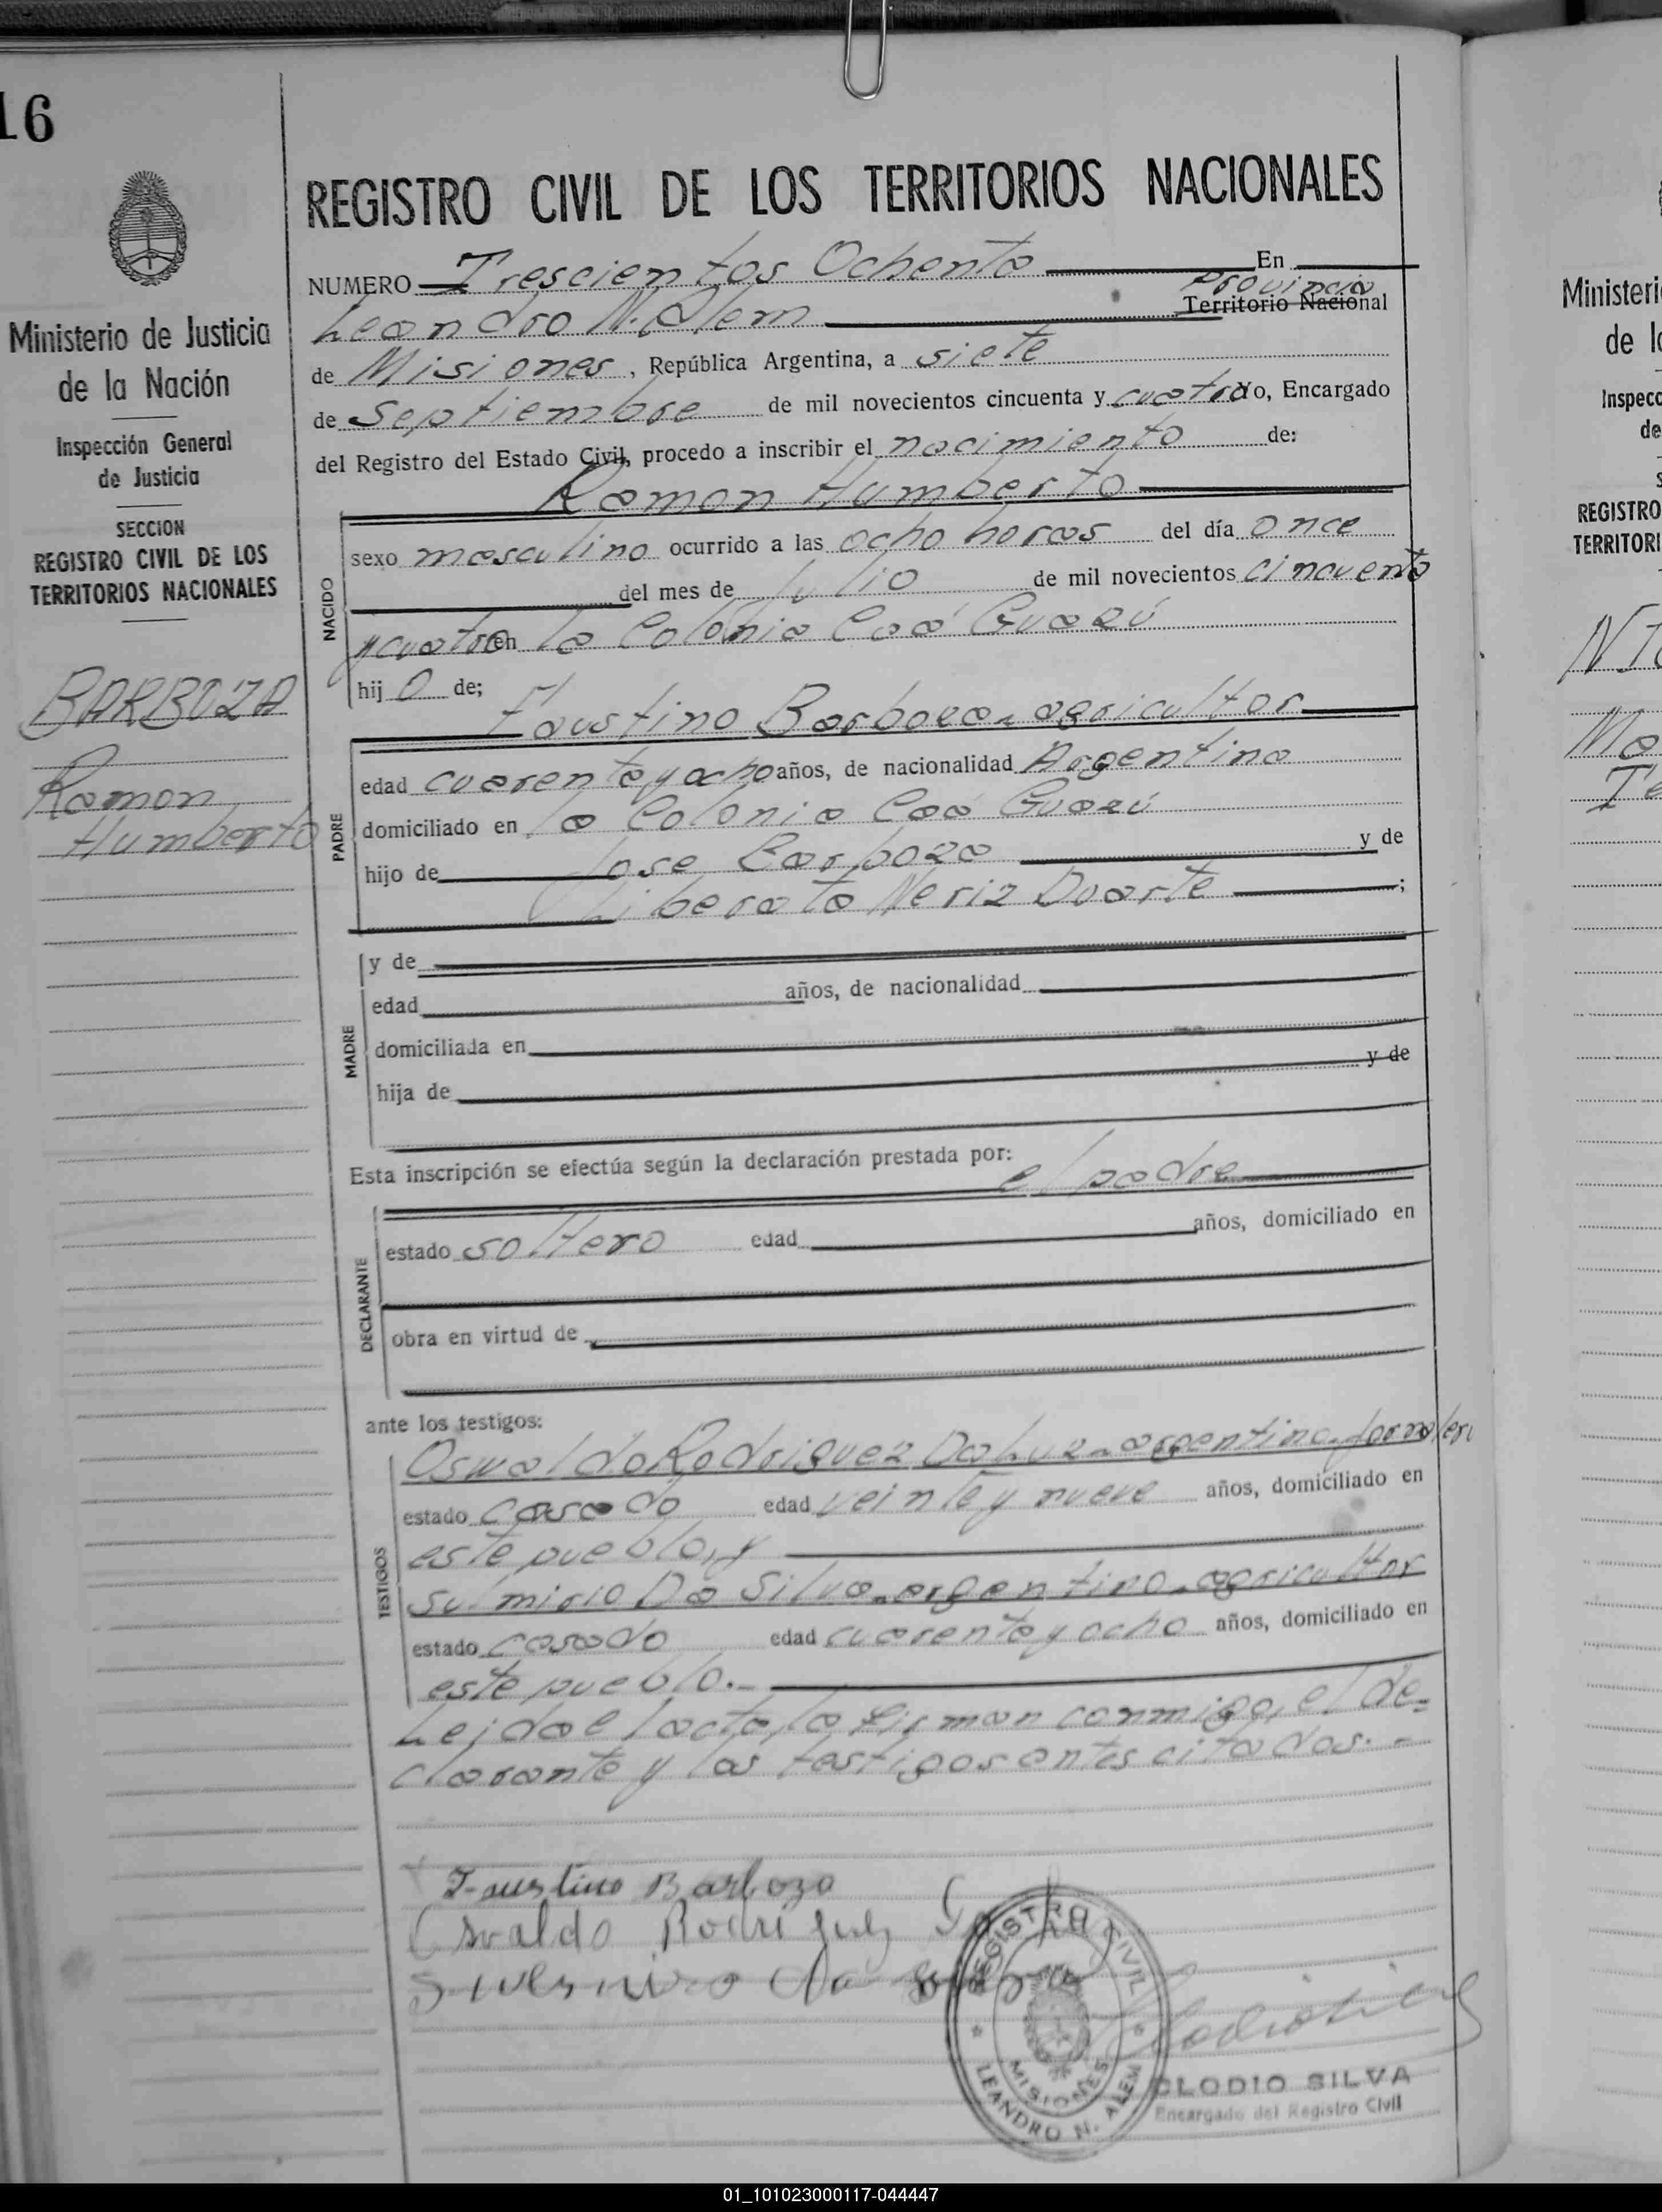 16
Ministerio de Justicia
de la Nación
Inspección General
de Justicia
SECCION
REGISTRO CIVIL DE LOS
TERRITORIOS NACIONALES
BARBOZA
Ramon
Humberto
REGISTRO CIVIL DE LOS TERRITORIOS NACIONALES
NUMERO Trescientos Ochenta En
Leandro N. Alem Provincia Territorio Nacional
de Misiones, República Argentina, a siete
de Septiembre de mil novecientos cincuenta y cuatro Yo, Encargado
del Registro del Estado Civil, procedo a inscribir el nacimiento de:
Ramon Humberto
NACIDO
sexo masculino ocurrido a las ocho horas del día once
del mes de Julio de mil novecientos cincuenta
y cuatro en la Colonia Caá Guazú
hijo de;
Faustino Barboza - agricultor
PADRE
edad cuarenta y ocho años, de nacionalidad Argentina
domiciliado en la Colonia Caá Guazú
hijo de Jose Barboza y de
Liberata Neriz Duarte ;
MADRE
y de
edad años, de nacionalidad
domiciliada en
hija de y de
Esta inscripción se efectúa según la declaración prestada por:
el padre
DECLARANTE
estado soltero edad años, domiciliado en
obra en virtud de
ante los testigos:
TESTIGOS
Oswaldo Rodriguez Da Luz - argentino - jornalero
estado casado edad veinte y nueve años, domiciliado en
este pueblo, y
Sulmirio Da Silva - argentino - agricultor
estado casado edad cuarenta y ocho años, domiciliado en
este pueblo.-
Leida el acta, la firman conmigo, el de=
clarante y los testigos antes citados.-
Faustino Barboza
Osvaldo Rodriguez
da Silva
REGISTRO CIVIL
MISIONES
LEANDRO N. ALEM
CLODIO SILVA
Encargado del Registro Civil
Ministeri
de l
Inspecc
de
REGISTRO
TERRITORI
01_101023000117-044447